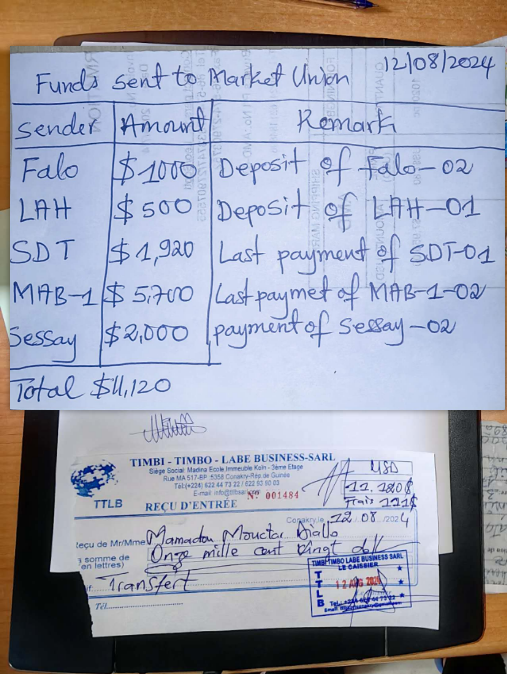 12/08/2024
Funds sent to Market Union
Sender Amount Remark
Falo $1000 Deposit of Falo-02
LAH $500 Deposit of LAH-01
SDT $1,920 Last payment of SDT-01
MAB-1 $5,700 Last paymet of MAB-1-02
Sessay $2,000 payment of Sessay-02
Total $11,120
TIMBI - TIMBO - LABE BUSINESS-SARL
Siège Social: Madina Ecole Immeuble Koln - 3ème Etage
Rue MA 517-BP: 5358 Conakry-Rép de Guinée
TTLB
REÇU D'ENTRÉE N° 001484
USD
Conakry, le 12 08 2024
Reçu de Mr/Mme Mamadou Mouctar Diallo
a somme de Onze mille cent vingt doll
en lettres)
Transfert
Tél
TIMBI TIMBO LABE BUSINESS SARL
LE CAISSIER
TTLB
12 AUG 2024